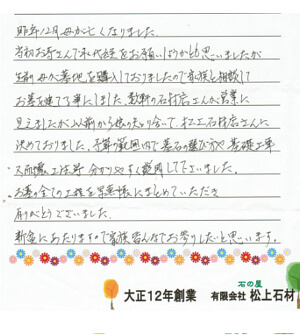 昨年12月母が亡くなりました。
当初お寺さんで永代経をお願いしようかとも思いましたが
生前母が墓地を購入しておりましたので家族と相談して
お墓を建てる事にしました。数軒の石材店さんが営業に
見えましたが以前から 知り合いで、松上石材店さんに
決めておりました。予算の範囲内で墓石の選び方や基礎工事
分かりやすく説明して下さいました。
お墓の全ての工程を写真帳にまとめていただき
ありがとうございました。
新盆にあたりますので家族皆んなでお参りしたいと思います。
石の屋
大正12年創業 有限会社 松上石材